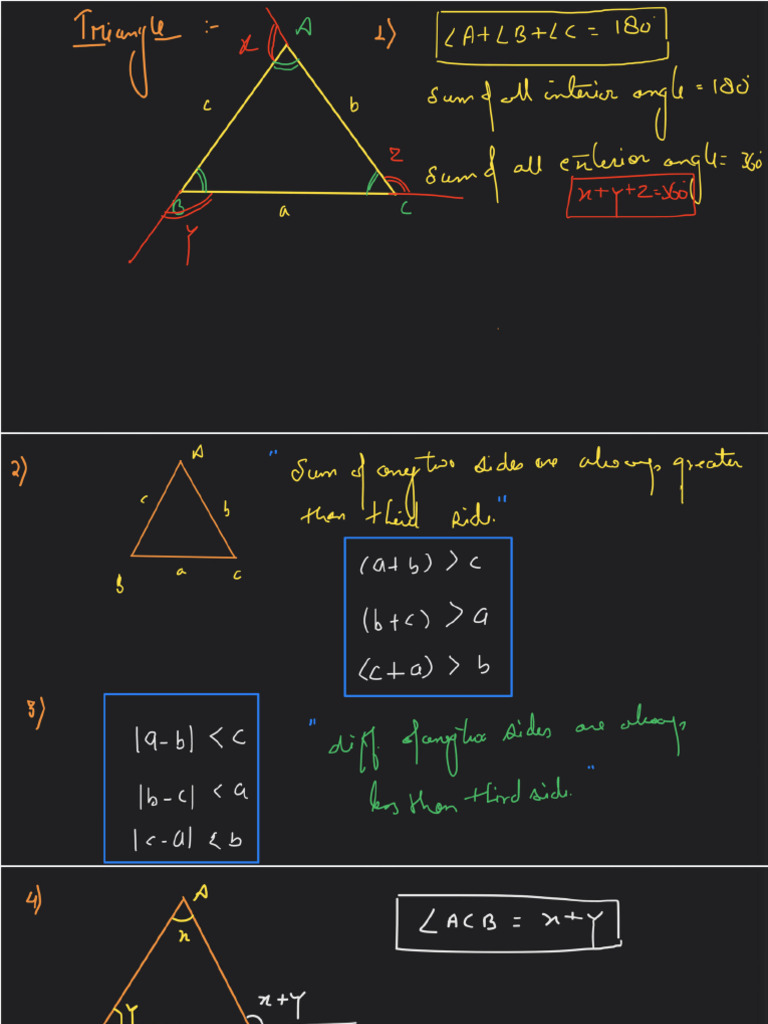 Triangle :-
A
x
c
b
z
B
a
C
y
1) ∠A+∠B+∠C = 180°
Sum of all interior angle = 180°
Sum of all exterior angle = 360°
x+y+z=360°
2)
A
c
b
B
a
c
"Sum of any two sides are always greater
than third side."
(a+b) > c
(b+c) > a
(c+a) > b
3)
|a-b| < c
|b-c| < a
|c-a| < b
"diff. of any two sides are always
less than third side."
4)
A
x
y
x+y
∠ACB = x+y